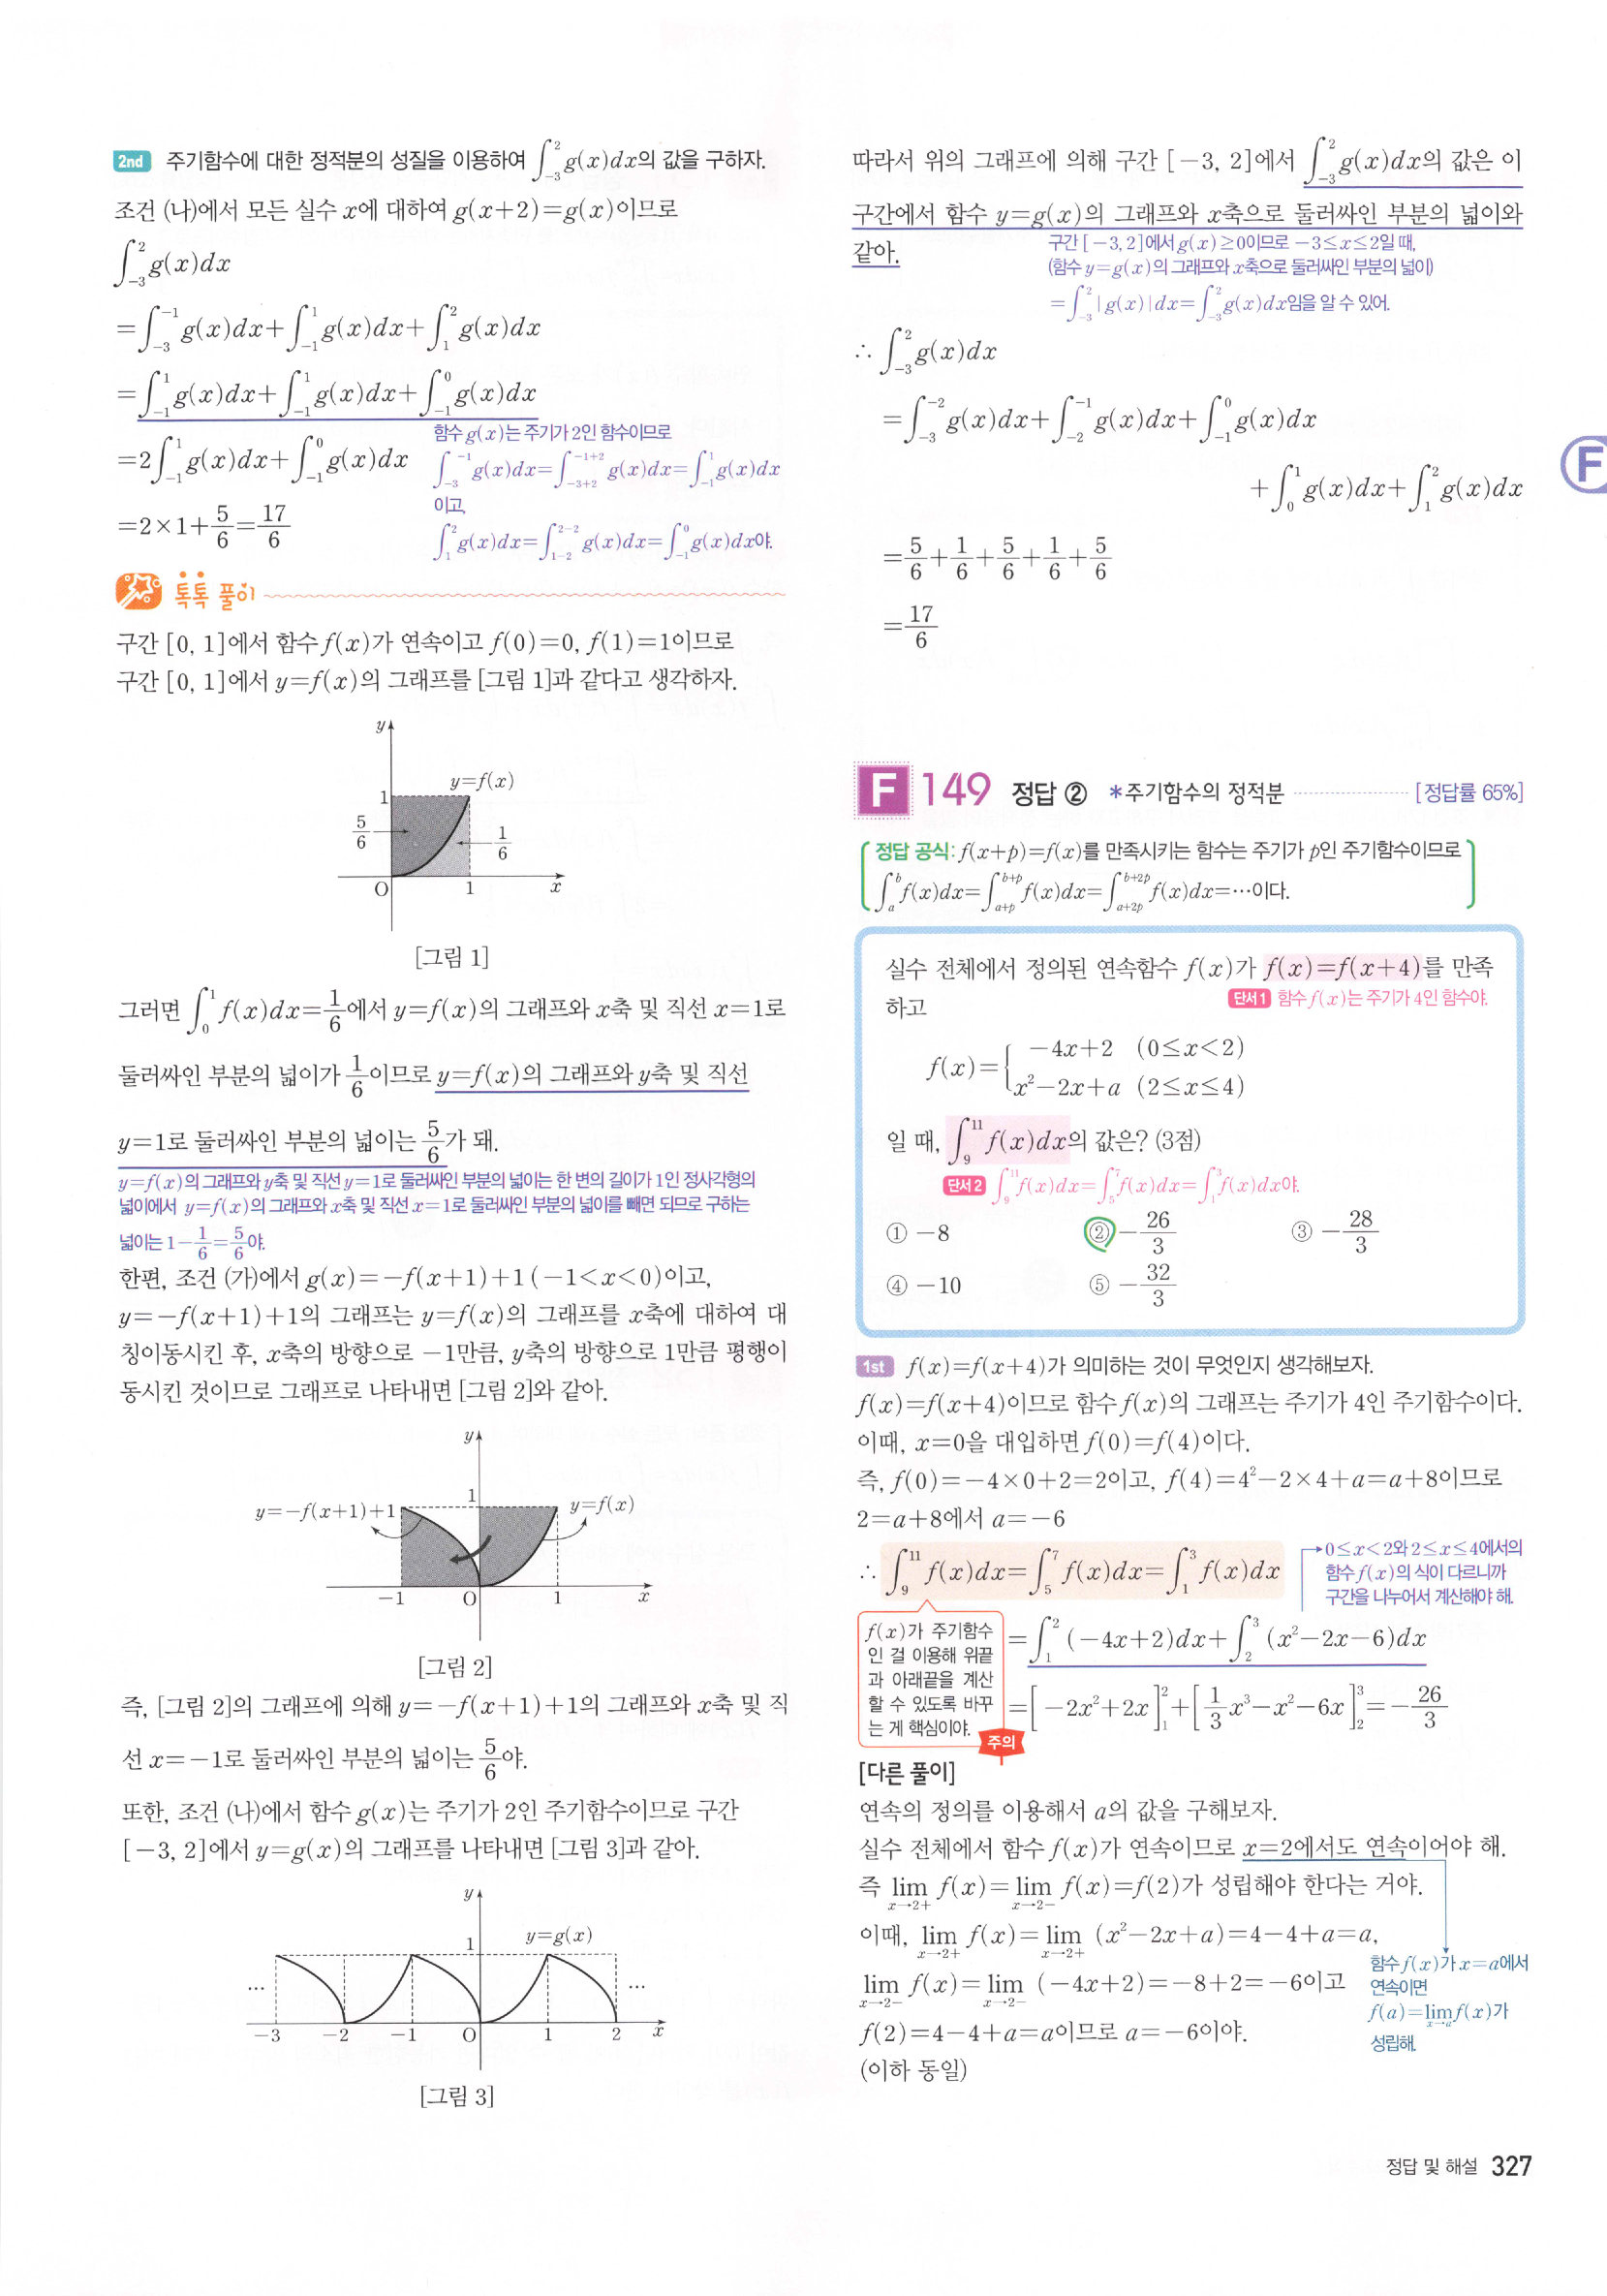 2nd 주기함수에 대한 정적분의 성질을 이용하여 ∫_{-3}^{2} g(x)dx의 값을 구하자.
조건 (나)에서 모든 실수 x에 대하여 g(x+2)=g(x)이므로
∫_{-3}^{2} g(x)dx
=∫_{-3}^{-1} g(x)dx+∫_{-1}^{1} g(x)dx+∫_{1}^{2} g(x)dx
=∫_{-1}^{1} g(x)dx+∫_{-1}^{1} g(x)dx+∫_{-1}^{0} g(x)dx
=2∫_{-1}^{1} g(x)dx+∫_{-1}^{0} g(x)dx
=2×1+5/6=17/6
함수 g(x)는 주기가 2인 함수이므로
∫_{-3}^{-1} g(x)dx=∫_{-3+2}^{-1+2} g(x)dx=∫_{-1}^{1} g(x)dx
이고,
∫_{1}^{2} g(x)dx=∫_{1-2}^{2-2} g(x)dx=∫_{-1}^{0} g(x)dx야.
톡톡 풀이
구간 [0, 1]에서 함수 f(x)가 연속이고 f(0)=0, f(1)=1이므로
구간 [0, 1]에서 y=f(x)의 그래프를 [그림 1]과 같다고 생각하자.
y
y=f(x)
1
5/6
1/6
O 1 x
[그림 1]
그러면 ∫_{0}^{1} f(x)dx=1/6에서 y=f(x)의 그래프와 x축 및 직선 x=1로
둘러싸인 부분의 넓이가 1/6이므로 y=f(x)의 그래프와 y축 및 직선
y=1로 둘러싸인 부분의 넓이는 5/6가 돼.
y=f(x)의 그래프와 y축 및 직선 y=1로 둘러싸인 부분의 넓이는 한 변의 길이가 1인 정사각형의
넓이에서 y=f(x)의 그래프와 x축 및 직선 x=1로 둘러싸인 부분의 넓이를 빼면 되므로 구하는
넓이는 1-1/6=5/6야.
한편, 조건 (가)에서 g(x)=-f(x+1)+1(-1<x<0)이고,
y=-f(x+1)+1의 그래프는 y=f(x)의 그래프를 x축에 대하여 대
칭이동시킨 후, x축의 방향으로 -1만큼, y축의 방향으로 1만큼 평행이
동시킨 것이므로 그래프로 나타내면 [그림 2]와 같아.
y
1
y=-f(x+1)+1
y=f(x)
-1 O 1 x
[그림 2]
즉, [그림 2]의 그래프에 의해 y=-f(x+1)+1의 그래프와 x축 및 직
선 x=-1로 둘러싸인 부분의 넓이는 5/6야.
또한, 조건 (나)에서 함수 g(x)는 주기가 2인 주기함수이므로 구간
[-3, 2]에서 y=g(x)의 그래프를 나타내면 [그림 3]과 같아.
y
1
y=g(x)
… …
-3 -2 -1 O 1 2 x
[그림 3]
따라서 위의 그래프에 의해 구간 [-3, 2]에서 ∫_{-3}^{2} g(x)dx의 값은 이
구간에서 함수 y=g(x)의 그래프와 x축으로 둘러싸인 부분의 넓이와
같아.
구간 [-3, 2]에서 g(x)≥0이므로 -3≤x≤2일 때,
(함수 y=g(x)의 그래프와 x축으로 둘러싸인 부분의 넓이)
=∫_{-3}^{2} |g(x)|dx=∫_{-3}^{2} g(x)dx임을 알 수 있어.
∴ ∫_{-3}^{2} g(x)dx
=∫_{-3}^{-2} g(x)dx+∫_{-2}^{-1} g(x)dx+∫_{-1}^{0} g(x)dx
+∫_{0}^{1} g(x)dx+∫_{1}^{2} g(x)dx
=5/6+1/6+5/6+1/6+5/6
=17/6
F
F 149 정답 ② *주기함수의 정적분 [정답률 65%]
정답 공식: f(x+p)=f(x)를 만족시키는 함수는 주기가 p인 주기함수이므로
∫_{a}^{b} f(x)dx=∫_{a+p}^{b+p} f(x)dx=∫_{a+2p}^{b+2p} f(x)dx=…이다.
실수 전체에서 정의된 연속함수 f(x)가 f(x)=f(x+4)를 만족
하고
단서1 함수 f(x)는 주기가 4인 함수야.
f(x)={ -4x+2 (0≤x<2)
x²-2x+a (2≤x≤4)
일 때, ∫_{9}^{11} f(x)dx의 값은? (3점)
단서2 ∫_{9}^{11} f(x)dx=∫_{5}^{7} f(x)dx=∫_{1}^{3} f(x)dx야.
① -8 ② -26/3 ③ -28/3
④ -10 ⑤ -32/3
1st f(x)=f(x+4)가 의미하는 것이 무엇인지 생각해보자.
f(x)=f(x+4)이므로 함수 f(x)의 그래프는 주기가 4인 주기함수이다.
이때, x=0을 대입하면 f(0)=f(4)이다.
즉, f(0)=-4×0+2=2이고, f(4)=4²-2×4+a=a+8이므로
2=a+8에서 a=-6
∴ ∫_{9}^{11} f(x)dx=∫_{5}^{7} f(x)dx=∫_{1}^{3} f(x)dx
0≤x<2와 2≤x≤4에서의
함수 f(x)의 식이 다르니까
구간을 나누어서 계산해야 해.
=∫_{1}^{2} (-4x+2)dx+∫_{2}^{3} (x²-2x-6)dx
=[-2x²+2x]_{1}^{2}+[1/3x³-x²-6x]_{2}^{3}=-26/3
f(x)가 주기함수
인 걸 이용해 위끝
과 아래끝을 계산
할 수 있도록 바꾸
는 게 핵심이야.
주의
[다른 풀이]
연속의 정의를 이용해서 a의 값을 구해보자.
실수 전체에서 함수 f(x)가 연속이므로 x=2에서도 연속이어야 해.
즉 lim_{x→2+} f(x)=lim_{x→2-} f(x)=f(2)가 성립해야 한다는 거야.
이때, lim_{x→2+} f(x)=lim_{x→2+} (x²-2x+a)=4-4+a=a,
lim_{x→2-} f(x)=lim_{x→2-} (-4x+2)=-8+2=-6이고
f(2)=4-4+a=a이므로 a=-6이야.
(이하 동일)
함수 f(x)가 x=a에서
연속이면
f(a)=lim_{x→a} f(x)가
성립해.
정답 및 해설 327